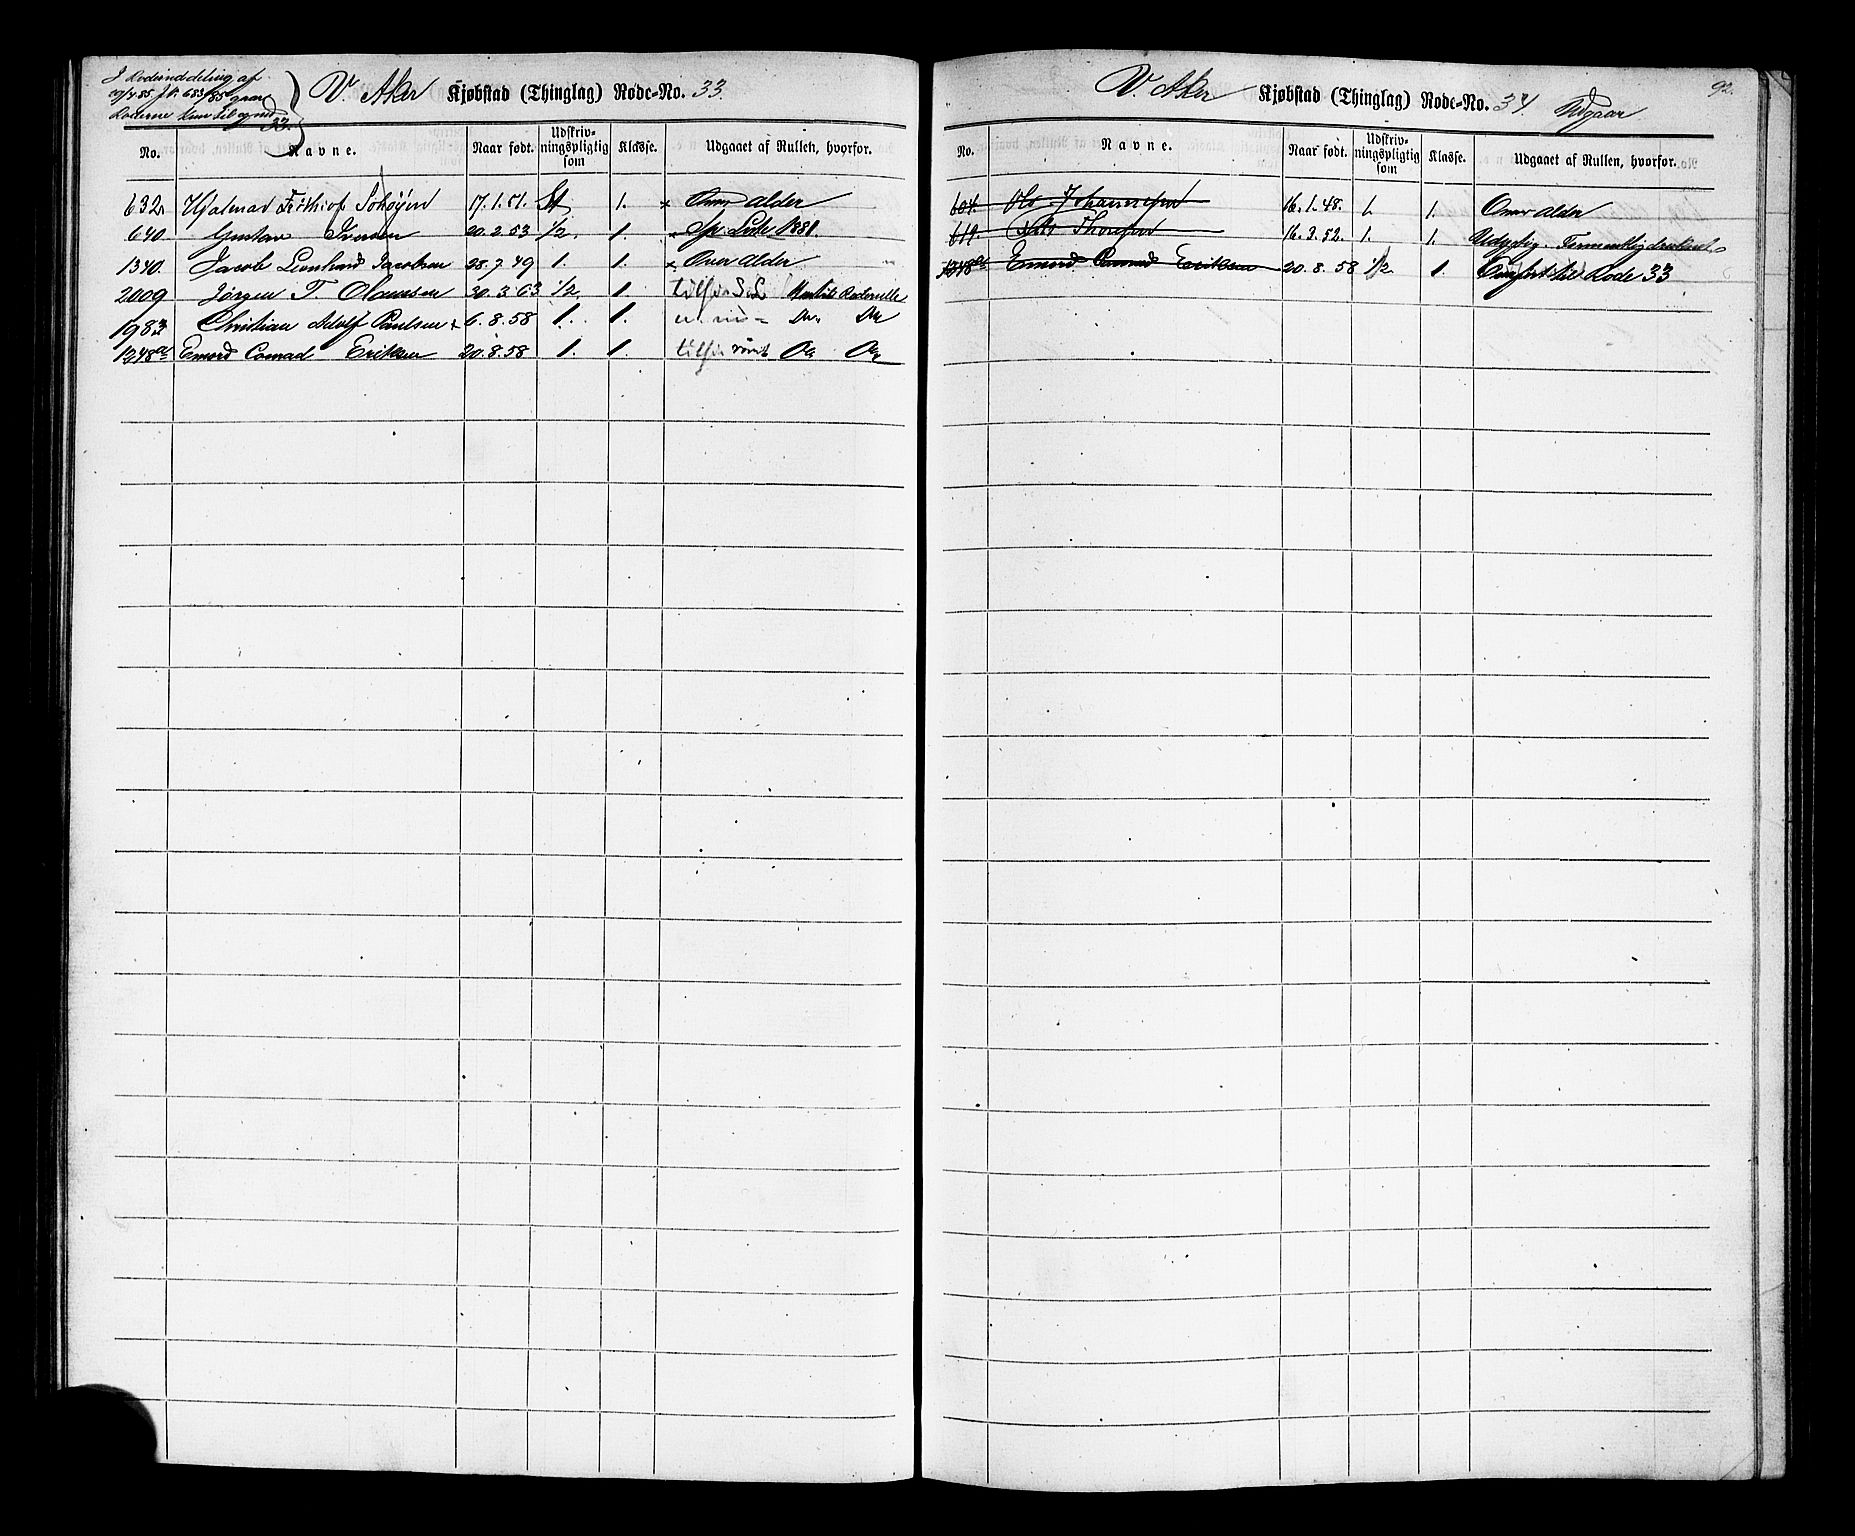 V. Aker Kjøbstad (Thinglag) Rode-No. 33.
I Rodeinddeling af
J.N. 683/85 gaar
Roderne kun til og med
33.
No. Navne. Naar født. Udskriv-ningspligtig som Klasse. Udgaaet af Rullen, hvorfor.
632 Hjalmar Frithiof Schøyen 17.1.51. St 1. × Over alder
640. Gustav Iversen 20.2.53 1/2. 1. × Sp. Liste 1881.
1340. Jacob Leonhard Jacobsen 28.7.49 1. 1. × Over alder
2009 Jørgen T. Olaussen 30.3.63 1/2 1.
1983 Christian Adolf Paulsen 6.8.58 1. 1. Do. Do
1248 Emord Conrad Eriksen 20.8.58 1. 1. Do Do
92.
V. Aker Kjøbstad (Thinglag) Rode-No. 34. Udgaar
No. Navne. Naar født. Udskriv-ningspligtig som Klasse. Udgaaet af Rullen, hvorfor.
604. Ole Johannesen 16.1.48. 1. 1. Over alder
619. Thoresen 16.3.52. 1. 1. Udygtig.
1248 Emord Conrad Eriksen 20.8.58 1/2 1. Overført til Rode 33